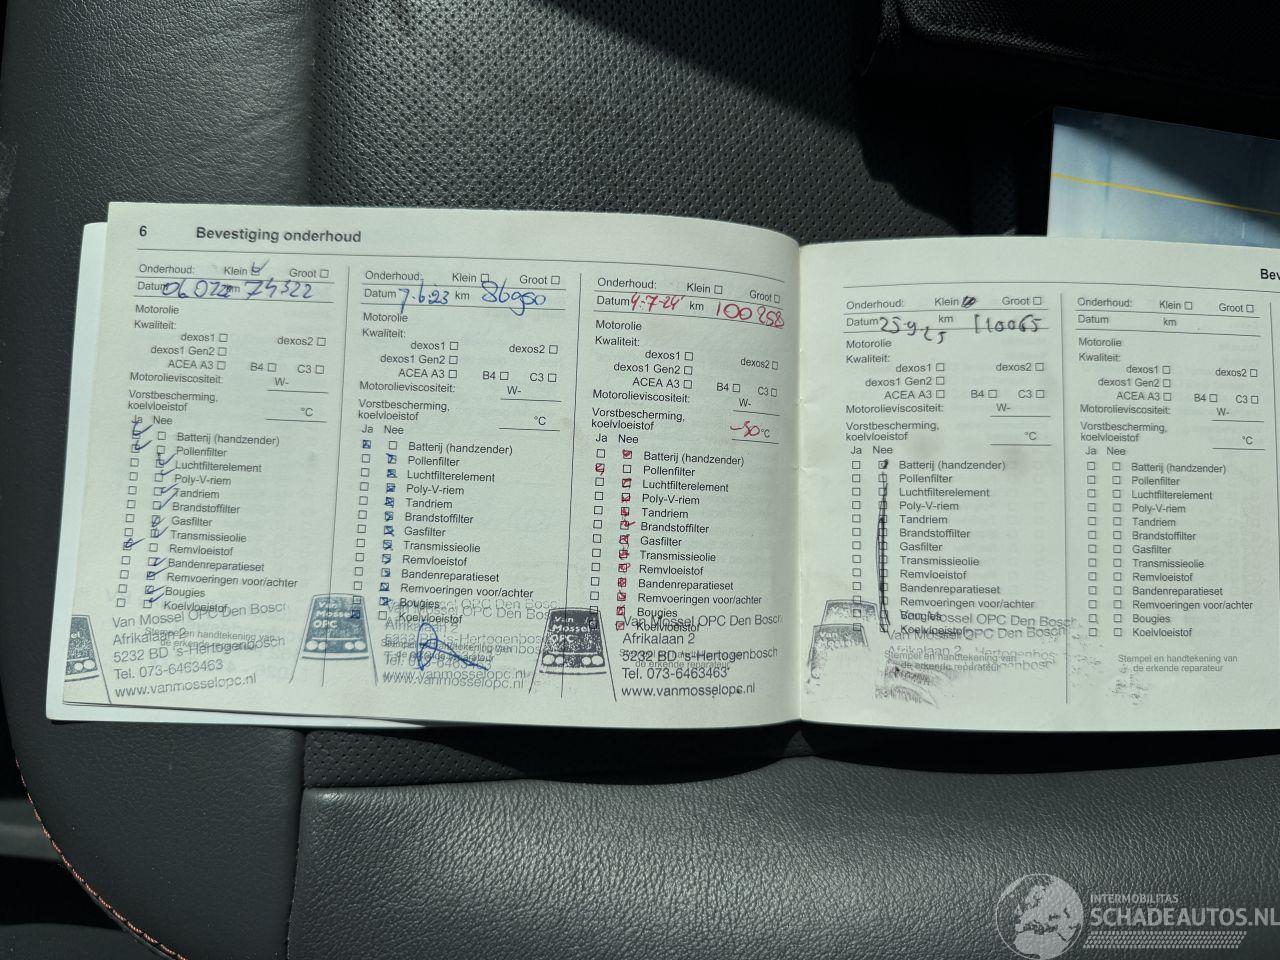 6 Bevestiging onderhoud
Onderhoud: Klein Groot
Datum 060722 km 74322
Motorolie
Kwaliteit:
dexos1 dexos2
dexos1 Gen2
ACEA A3 B4 C3
Motorolieviscositeit: W-
Vorstbescherming,
koelvloeistof °C
Ja Nee
Batterij (handzender)
Pollenfilter
Luchtfilterelement
Poly-V-riem
Tandriem
Brandstoffilter
Gasfilter
Transmissieolie
Remvloeistof
Bandenreparatieset
Remvoeringen voor/achter
Bougies
Koelvloeistof
Van Mossel OPC Den Bosch
Stempel en handtekening van
de erkende reparateur
Afrikalaan 2
5232 BD 's-Hertogenbosch
Tel. 073-6463463
www.vanmosselopc.nl
Van
Mossel
OPC
Onderhoud: Klein Groot
Datum 7.6.23 km 86950
Motorolie
Kwaliteit:
dexos1 dexos2
dexos1 Gen2
ACEA A3 B4 C3
Motorolieviscositeit: W-
Vorstbescherming,
koelvloeistof °C
Ja Nee
Batterij (handzender)
Pollenfilter
Luchtfilterelement
Poly-V-riem
Tandriem
Brandstoffilter
Gasfilter
Transmissieolie
Remvloeistof
Bandenreparatieset
Remvoeringen voor/achter
Bougies
Koelvloeistof
Van Mossel OPC Den Bosch
Afrikalaan 2
5232 BD 's-Hertogenbosch
Stempel en handtekening van
de erkende reparateur
Tel. 073-6463463
www.vanmosselopc.nl
Van
Mossel
OPC
Onderhoud: Klein Groot
Datum 4-7-24 km 100258
Motorolie
Kwaliteit:
dexos1 dexos2
dexos1 Gen2
ACEA A3 B4 C3
Motorolieviscositeit: W-
Vorstbescherming,
koelvloeistof -30 °C
Ja Nee
Batterij (handzender)
Pollenfilter
Luchtfilterelement
Poly-V-riem
Tandriem
Brandstoffilter
Gasfilter
Transmissieolie
Remvloeistof
Bandenreparatieset
Remvoeringen voor/achter
Bougies
Koelvloeistof
Van Mossel OPC Den Bosch
Afrikalaan 2
5232 BD 's-Hertogenbosch
de erkende reparateur
Tel. 073-6463463
www.vanmosselopc.nl
Onderhoud: Klein Groot
Datum 25 9 25 km 110065
Motorolie
Kwaliteit:
dexos1 dexos2
dexos1 Gen2
ACEA A3 B4 C3
Motorolieviscositeit: W-
Vorstbescherming,
koelvloeistof °C
Ja Nee
Batterij (handzender)
Pollenfilter
Luchtfilterelement
Poly-V-riem
Tandriem
Brandstoffilter
Gasfilter
Transmissieolie
Remvloeistof
Bandenreparatieset
Remvoeringen voor/achter
Bougies
Koelvloeistof
Van Mossel OPC Den Bosch
Afrikalaan 2
Stempel en handtekening van
de erkende reparateur
Onderhoud: Klein Groot
Datum km
Motorolie
Kwaliteit:
dexos1 dexos2
dexos1 Gen2
ACEA A3 B4 C3
Motorolieviscositeit: W-
Vorstbescherming,
koelvloeistof °C
Ja Nee
Batterij (handzender)
Pollenfilter
Luchtfilterelement
Poly-V-riem
Tandriem
Brandstoffilter
Gasfilter
Transmissieolie
Remvloeistof
Bandenreparatieset
Remvoeringen voor/achter
Bougies
Koelvloeistof
Stempel en handtekening van
de erkende reparateur
INTERMOBILITAS
SCHADEAUTOS.NL